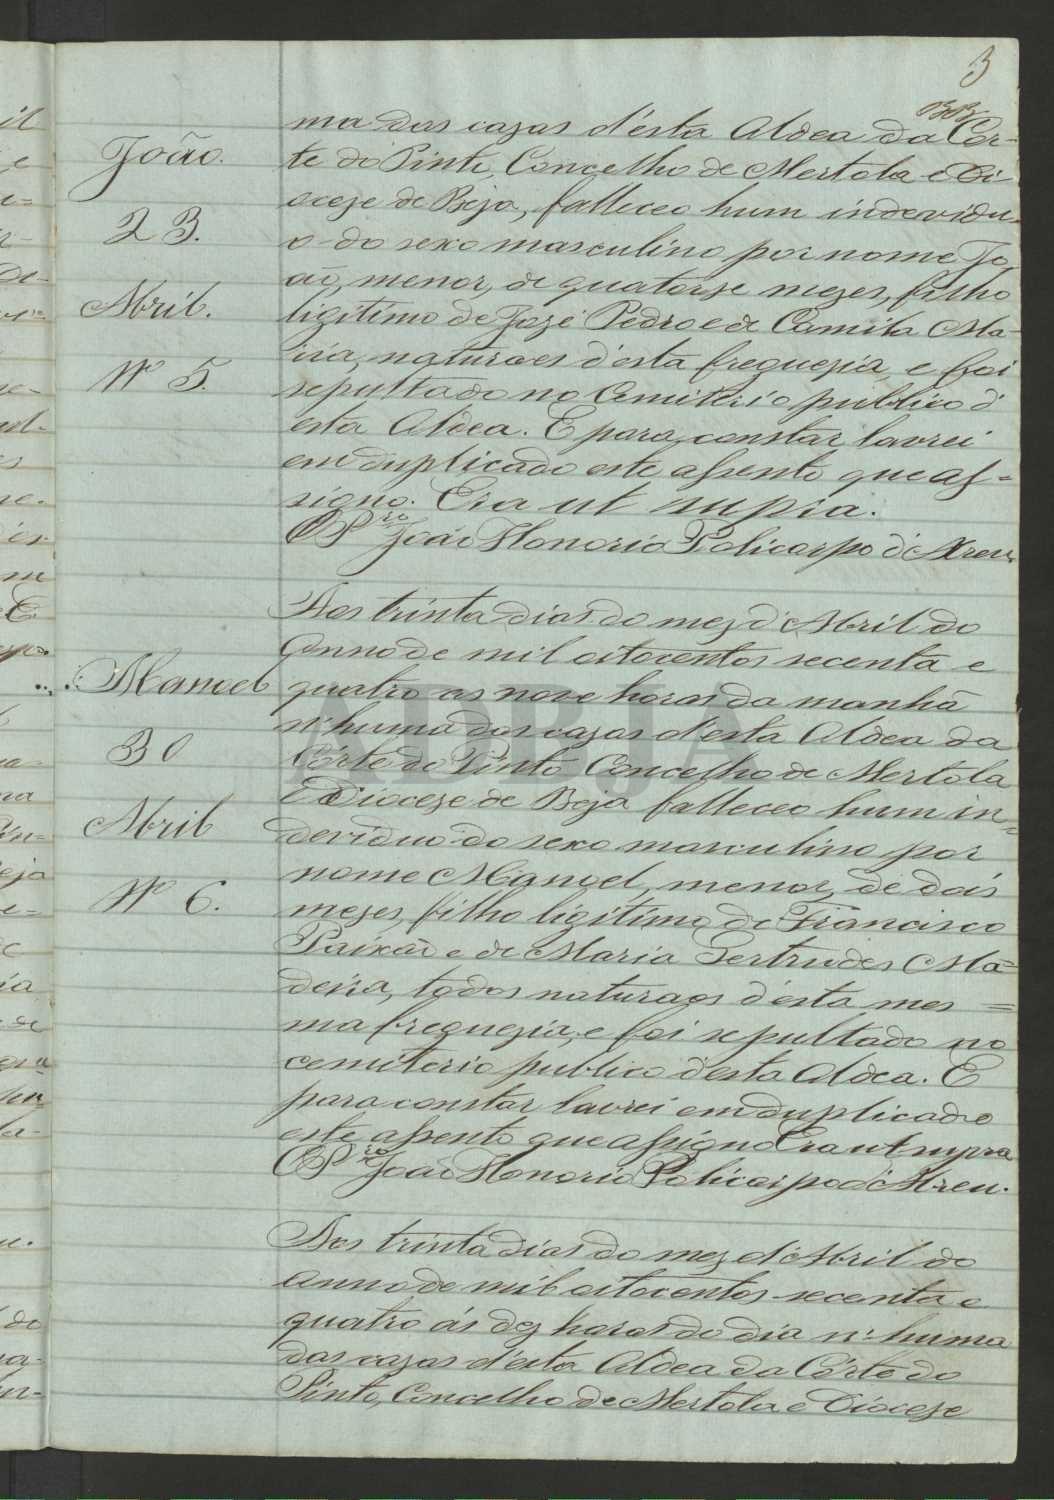 3
João.
23.
Abril.
Nº 5.
ma das cazas d'ésta Aldea da Cor-
te do Pinto, Concelho de Mertola e Di-
oceze de Beja, falleceo hum indevidu-
o do sexo masculino por nome Jo-
ão, menor, de quatorze mezes, filho
ligitimo de José Pedro e de Camila Ma-
ria, naturaes d'esta freguezia, e foi
sepultado no Cemiterio publico d'
esta Aldea. E para constar lavrei
em duplicado este assento que as-
signo. Era ut supra.
O Pr.ro João Honorio Policarpo d'Abreu
Manoel
30
Abril
Nº 6.
Aos trinta dias do mez d'Abril do
anno de mil oitocentos secenta e
quatro as nove horas da manhã
n'huma das cazas d'esta Aldea da
Côrte do Pinto Concelho de Mertola
e Dioceze de Beja falleceo hum in-
deviduo do sexo masculino por
nome Manoel, menor, de dois
mezes, filho ligitimo de Francisco
Paixão e de Maria Gertrudes Ma-
deira, todos naturaes d'esta mes-
ma freguezia, e foi sepultado no
cemiterio publico d'esta Aldea. E
para constar lavrei em duplicado
este assento que assigno Era ut supra
O Pr.ro João Honorio Policarpo d'Abreu.
Aos trinta dias do mez d'Abril do
anno de mil oitocentos secenta e
quatro ás dez horas do dia n'huma
das cazas d'esta Aldea da Côrte do
Pinto, Concelho de Mertola e Dioceze
ADBJA